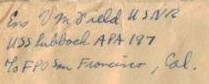 Ens V M Field USNR
USS Lubbock APA 197
c/o FPO San Francisco, Cal.